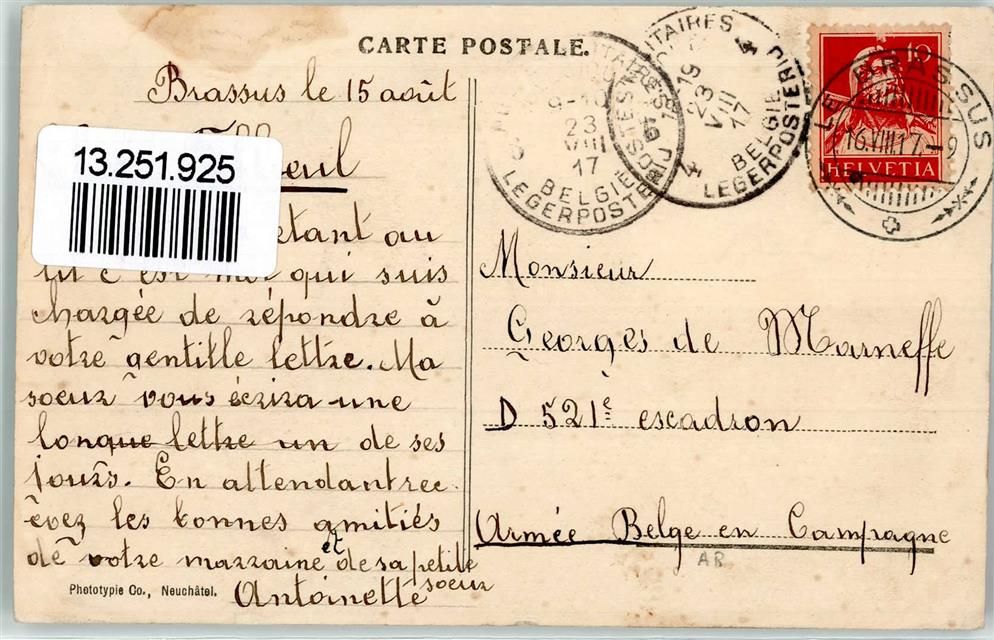 CARTE POSTALE.
Brassus le 15 août
13.251.925
étant au
lit c'est moi qui suis
chargée de répondre à
votre gentille lettre. Ma
soeur vous écrira une
longue lettre un de ses
jours. En attendant rec
evez les bonnes amitiés
de votre marraine et de sa petite
soeur
Antoinette
Phototypie Co., Neuchâtel.
23
VIII
17
BELGIE
LEGERPOSTERIJ
ITAIRES
4
19
23
VIII
17
BELGIE
LEGERPOSTERIJ
4
10
HELVETIA
LE BRASSUS
16.VIII.17.-9
Monsieur
Georges de Marneffe
D 521è escadron
Armée Belge en Campagne
AR